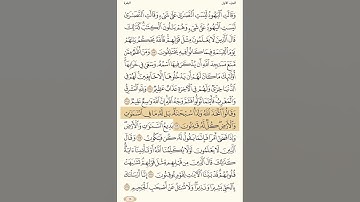 البقرة
الجزء الأول
وَقَالَتِ ٱلۡيَهُودُ لَيۡسَتِ ٱلنَّصَٰرَىٰ عَلَىٰ شَيۡءٖ وَقَالَتِ ٱلنَّصَٰرَىٰ
لَيۡسَتِ ٱلۡيَهُودُ عَلَىٰ شَيۡءٖ وَهُمۡ يَتۡلُونَ ٱلۡكِتَٰبَۗ كَذَٰلِكَ
قَالَ ٱلَّذِينَ لَا يَعۡلَمُونَ مِثۡلَ قَوۡلِهِمۡۚ فَٱللَّهُ يَحۡكُمُ بَيۡنَهُمۡ
يَوۡمَ ٱلۡقِيَٰمَةِ فِيمَا كَانُواْ فِيهِ يَخۡتَلِفُونَ ١١٣ وَمَنۡ أَظۡلَمُ مِمَّن
مَّنَعَ مَسَٰجِدَ ٱللَّهِ أَن يُذۡكَرَ فِيهَا ٱسۡمُهُۥ وَسَعَىٰ فِي خَرَابِهَآۚ
أُوْلَٰٓئِكَ مَا كَانَ لَهُمۡ أَن يَدۡخُلُوهَآ إِلَّا خَآئِفِينَۚ لَهُمۡ فِي
ٱلدُّنۡيَا خِزۡيٞ وَلَهُمۡ فِي ٱلۡأٓخِرَةِ عَذَابٌ عَظِيمٞ ١١٤ وَلِلَّهِ ٱلۡمَشۡرِقُ
وَٱلۡمَغۡرِبُۚ فَأَيۡنَمَا تُوَلُّواْ فَثَمَّ وَجۡهُ ٱللَّهِۚ إِنَّ ٱللَّهَ وَٰسِعٌ عَلِيمٞ ١١٥
وَقَالُواْ ٱتَّخَذَ ٱللَّهُ وَلَدٗاۗ سُبۡحَٰنَهُۥۖ بَل لَّهُۥ مَا فِي ٱلسَّمَٰوَٰتِ
وَٱلۡأَرۡضِۖ كُلّٞ لَّهُۥ قَٰنِتُونَ ١١٦ بَدِيعُ ٱلسَّمَٰوَٰتِ وَٱلۡأَرۡضِۖ
وَإِذَا قَضَىٰٓ أَمۡرٗا فَإِنَّمَا يَقُولُ لَهُۥ كُن فَيَكُونُ ١١٧ وَقَالَ
ٱلَّذِينَ لَا يَعۡلَمُونَ لَوۡلَا يُكَلِّمُنَا ٱللَّهُ أَوۡ تَأۡتِينَآ ءَايَةٞۗ
كَذَٰلِكَ قَالَ ٱلَّذِينَ مِن قَبۡلِهِم مِّثۡلَ قَوۡلِهِمۡۘ تَشَٰبَهَتۡ
قُلُوبُهُمۡۗ قَدۡ بَيَّنَّا ٱلۡأٓيَٰتِ لِقَوۡمٖ يُوقِنُونَ ١١٨ إِنَّآ أَرۡسَلۡنَٰكَ
بِٱلۡحَقِّ بَشِيرٗا وَنَذِيرٗاۖ وَلَا تُسۡـَٔلُ عَنۡ أَصۡحَٰبِ ٱلۡجَحِيمِ ١١٩